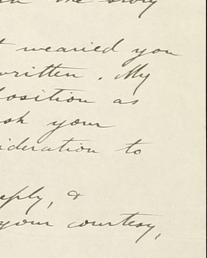 the story
wearied you
written. My
position as
ask your
ideration to
eply, &
your courtesy,